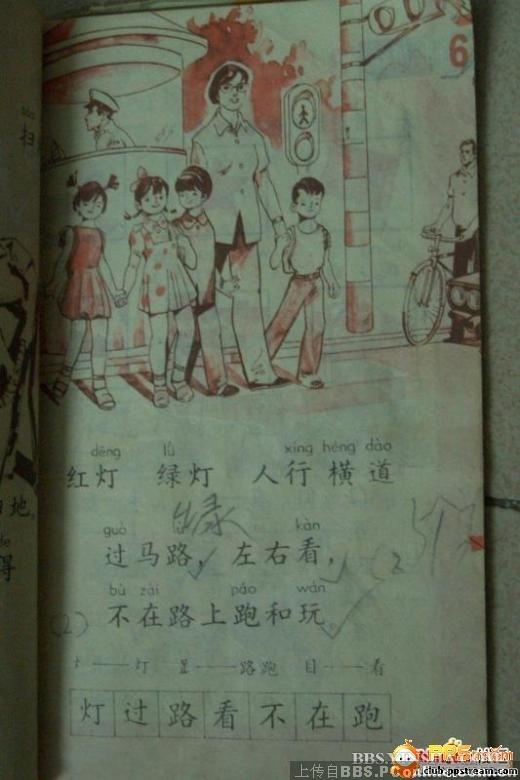 6
扫
dēng lǜ xíng héng dào
红灯 绿灯 人行横道
guò lù kàn
绿
过马路，左右看，
(2)
bù zài pǎo wán
(2) 不在路上跑和玩。
火——灯 𧾷——路跑 目——看
灯 过 路 看 不 在 跑
地。
de
得
上传自BBS.P
club.ppstream.com